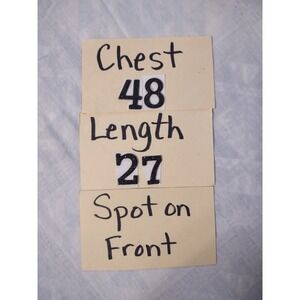 Chest
48
Length
27
Spot on
Front